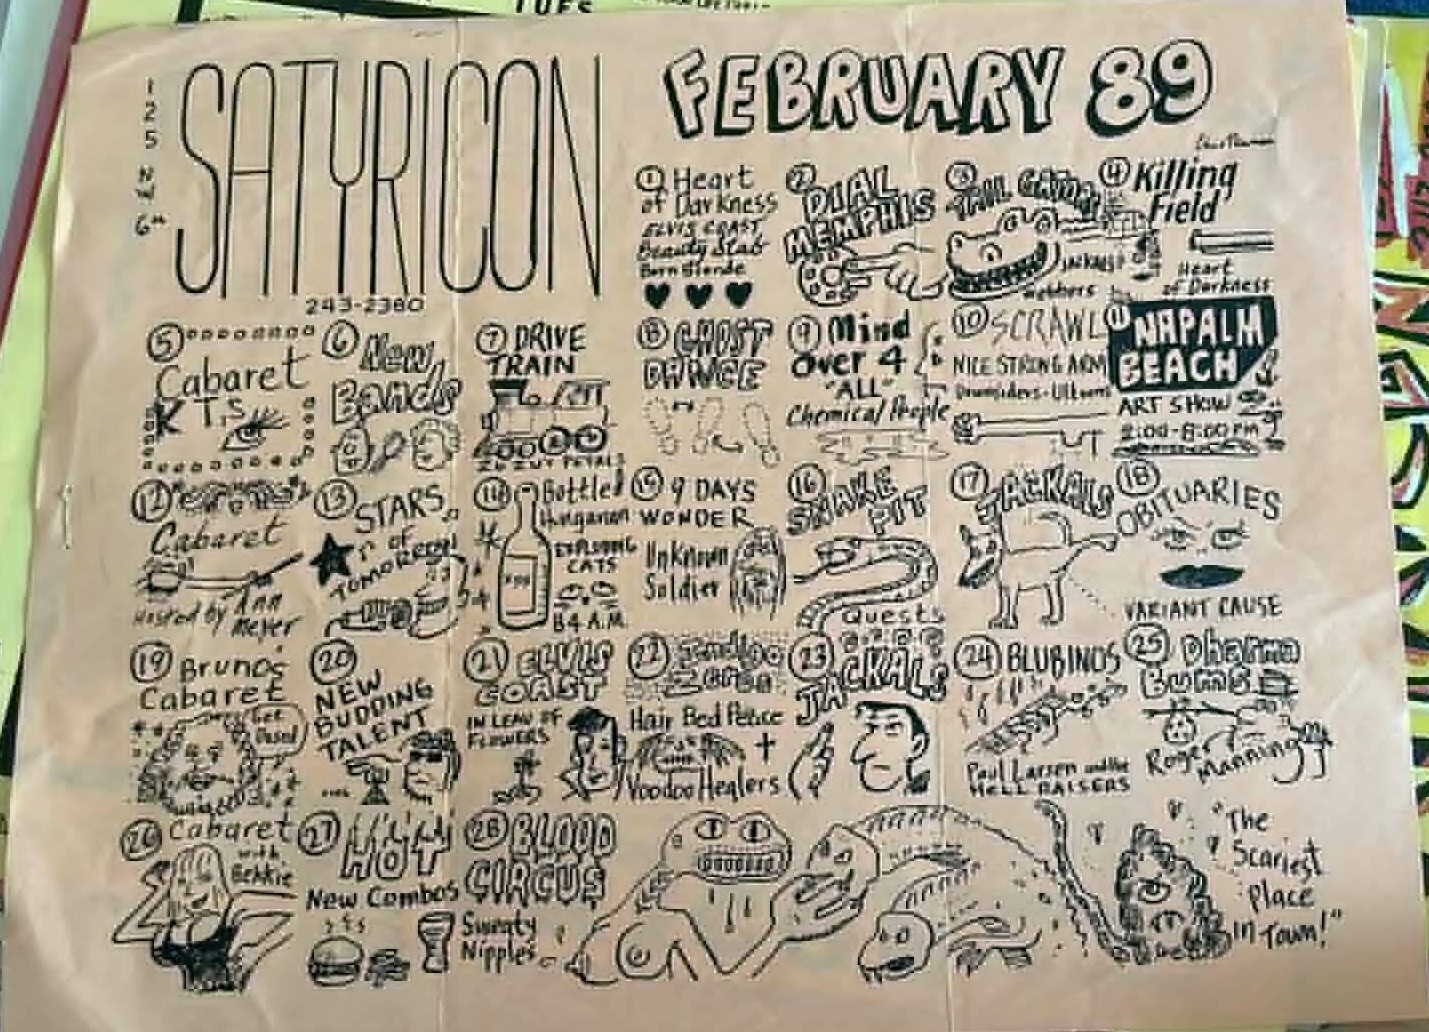 TUES
SATYRICON
125 NW 6th
243-2380
FEBRUARY 89
1 Heart
of Darkness
ELVIS COAST,
Beauty Stab
Born Blonde
2 DIAL
MEMPHIS
3 TAIL GATOR
JACKALS
4 Killing
Field
Heart
of Darkness
5 Cabaret
KT,s
6 New
Bands
7 DRIVE
TRAIN
8 GHOST
DANCE
9 Mind
over 4
"ALL"
Chemical People
10 SCRAWL
NICE STRONG ARM
11 NAPALM
BEACH
ART SHOW
2:00-8:00 PM
12
Cabaret
Hosted by Ann
Meyer
13 STARS
of
TOMORROW
14 Bottle
Hungarian
EXPLODING
CATS
B4 A.M.
15 9 DAYS
WONDER
Unknown
Soldier
16 SNAKE
PIT
Quests
17 JACKALS
18 OBITUARIES
VARIANT CAUSE
19 Brunos
Cabaret
Get
Used
20 NEW
BUDDING
TALENT
21 ELVIS
COAST
IN LEAU OF
FLOWERS
22
Hair Bed Peace
Voodoo Healers
23 JACKALS
24 BLUBINOS
Paul Larsen and the
HELL RAISERS
25 Dharma
Bums
Roger Manning
26 Cabaret
with
Bekkie
27 HOT
New Combos
28 BLOOD
CIRCUS
Sweaty
Nipples
"The
Scariest
Place
in Town!"